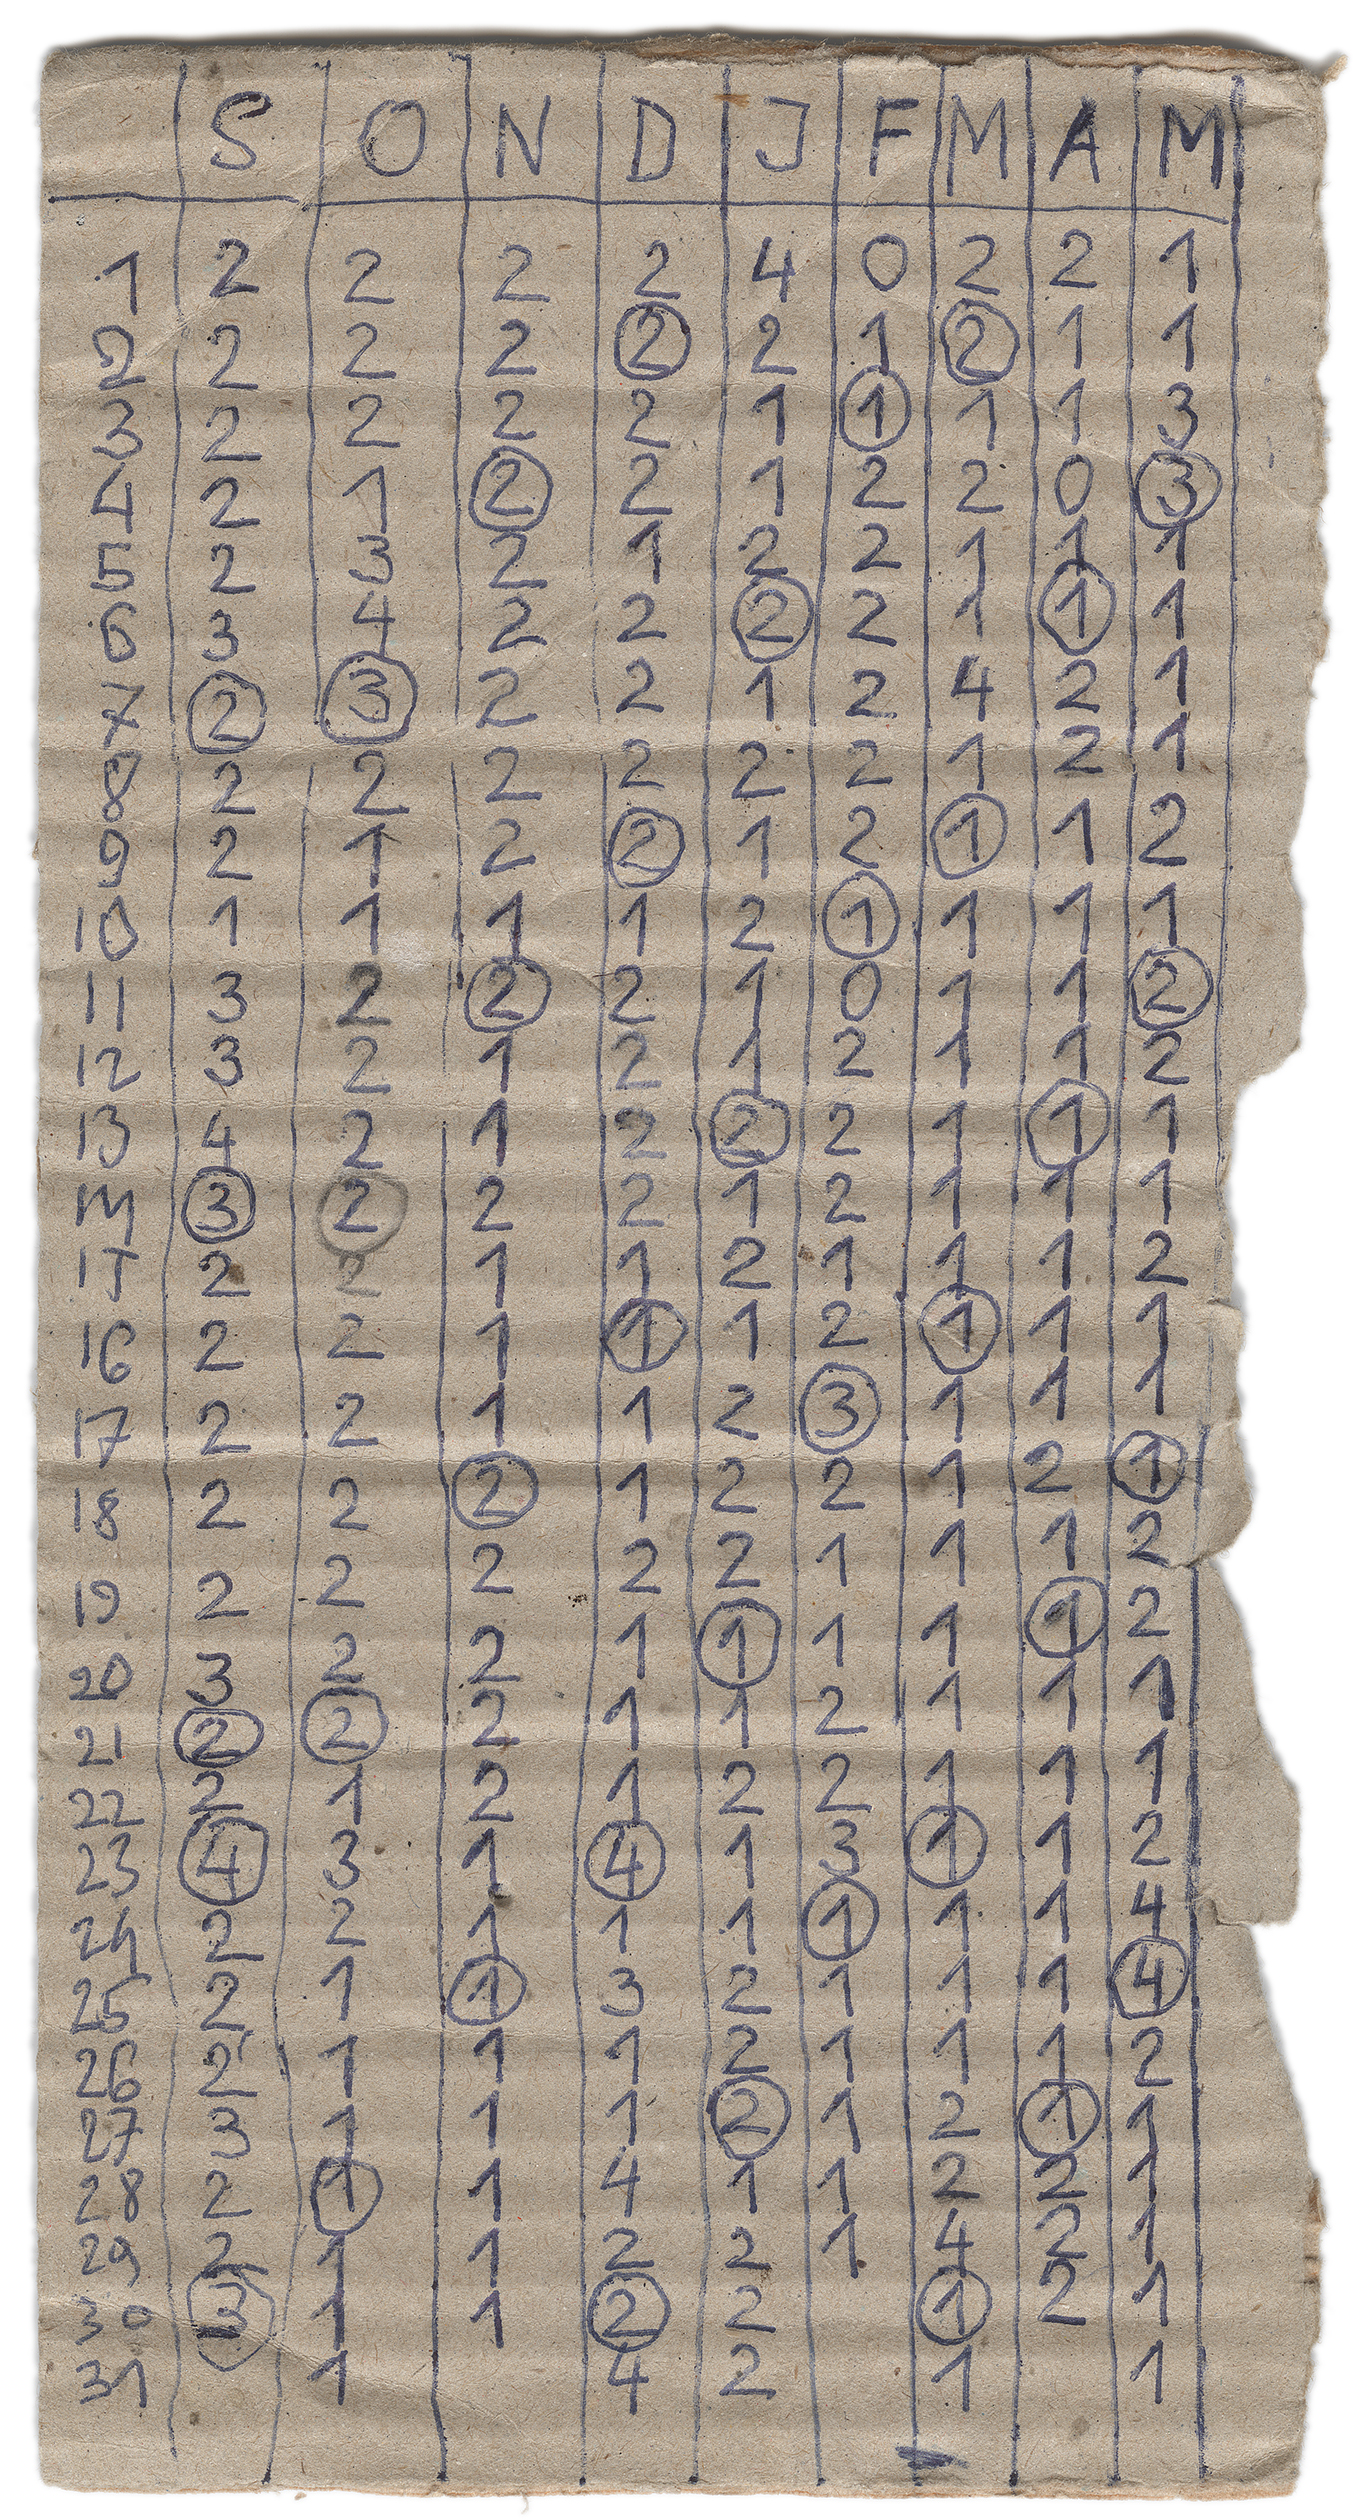 S O N D J F M A M
1 2 2 2 2 4 0 2 2 1
2 2 2 2 2 2 1 2 1 1
3 2 2 2 2 1 1 1 1 3
4 2 1 2 2 1 2 2 0 3
5 2 3 2 1 2 2 1 1 1
6 3 4 2 2 2 2 1 1 1
7 2 3 2 2 1 2 4 2 1
8 2 2 2 2 2 2 1 2 1
9 2 1 2 2 1 2 1 1 2
10 1 1 1 1 2 1 1 1 1
11 3 2 2 2 1 0 1 1 2
12 3 2 1 2 1 2 1 1 2
13 4 2 1 2 2 2 1 1 1
14 3 2 2 2 1 2 1 1 1
15 2 2 1 1 2 1 1 1 2
16 2 2 1 1 1 2 1 1 1
17 2 2 1 1 2 3 1 1 1
18 2 2 2 1 2 2 1 2 1
19 2 2 2 2 2 1 1 1 2
20 3 2 2 1 1 1 1 1 2
21 2 2 2 1 1 2 1 1 1
22 2 1 2 1 2 2 1 1 1
23 4 3 1 4 1 3 1 1 2
24 2 2 1 1 1 1 1 1 4
25 2 1 1 3 2 1 1 1 4
26 2 1 1 1 2 1 1 1 2
27 3 1 1 1 2 1 2 1 1
28 2 1 1 4 1 1 2 2 1
29 2 1 1 2 2 1 4 2 1
30 3 1 1 2 2 1 2 1
31 1 4 2 1 1